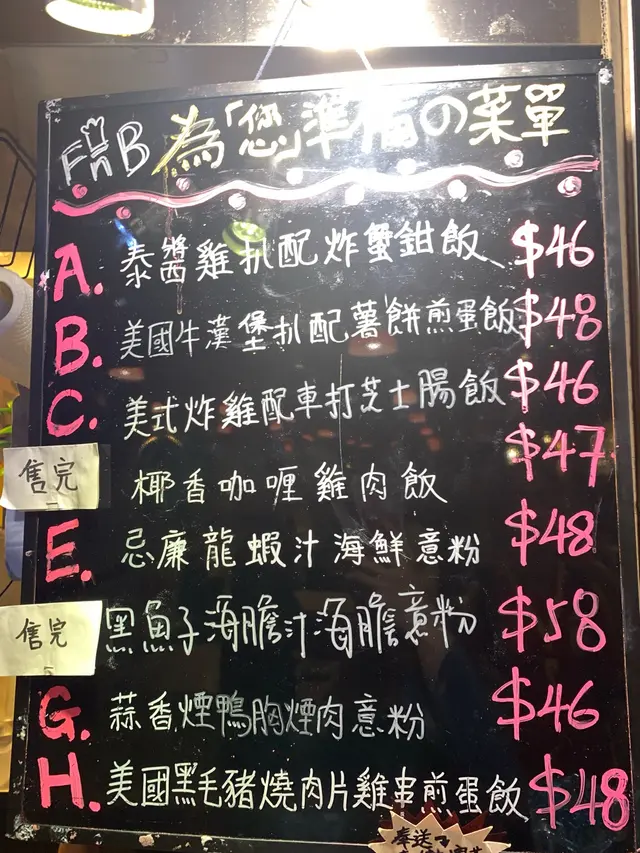 FnB 為「您」準備の菜單
A. 泰醬雞扒配炸蟹鉗飯 $46
B. 美國牛漢堡扒配薯餅煎蛋飯 $48
C. 美式炸雞配車打芝士腸飯 $46
售完 椰香咖喱雞肉飯 $47
E. 忌廉龍蝦汁海鮮意粉 $48
售完 黑魚子海膽汁海膽意粉 $58
G. 蒜香煙鴨胸煙肉意粉 $46
H. 美國黑毛豬燒肉片雞串煎蛋飯 $48
奉送